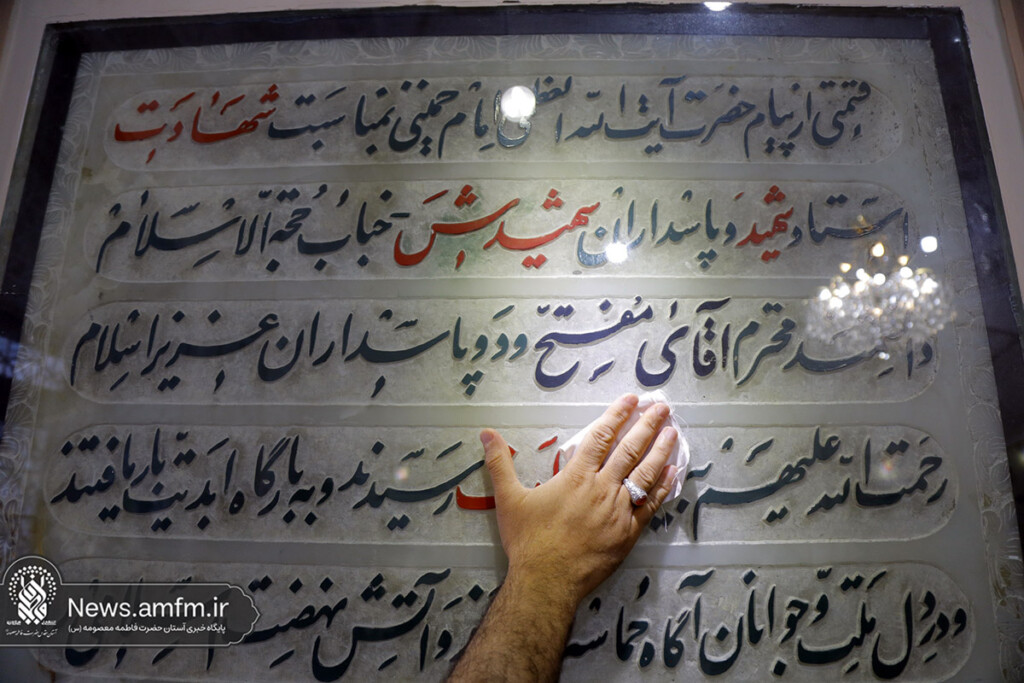 قسمتی از پیام حضرت آیت الله العظمی امام خمینی بمناسبت شهادت
استاد شهید و پاسداران شهیدش جناب حجة الاسلام
دانشمند محترم آقای مفتح و دو پاسداران عزیز اسلام
رحمت الله علیهم به رسیدند و به بارگاه ابدیت بار یافتند
و در دل ملت و جوانان آگاه حماسه و آتش نهضت
News.amfm.ir
پایگاه خبری آستان حضرت فاطمه معصومه (س)